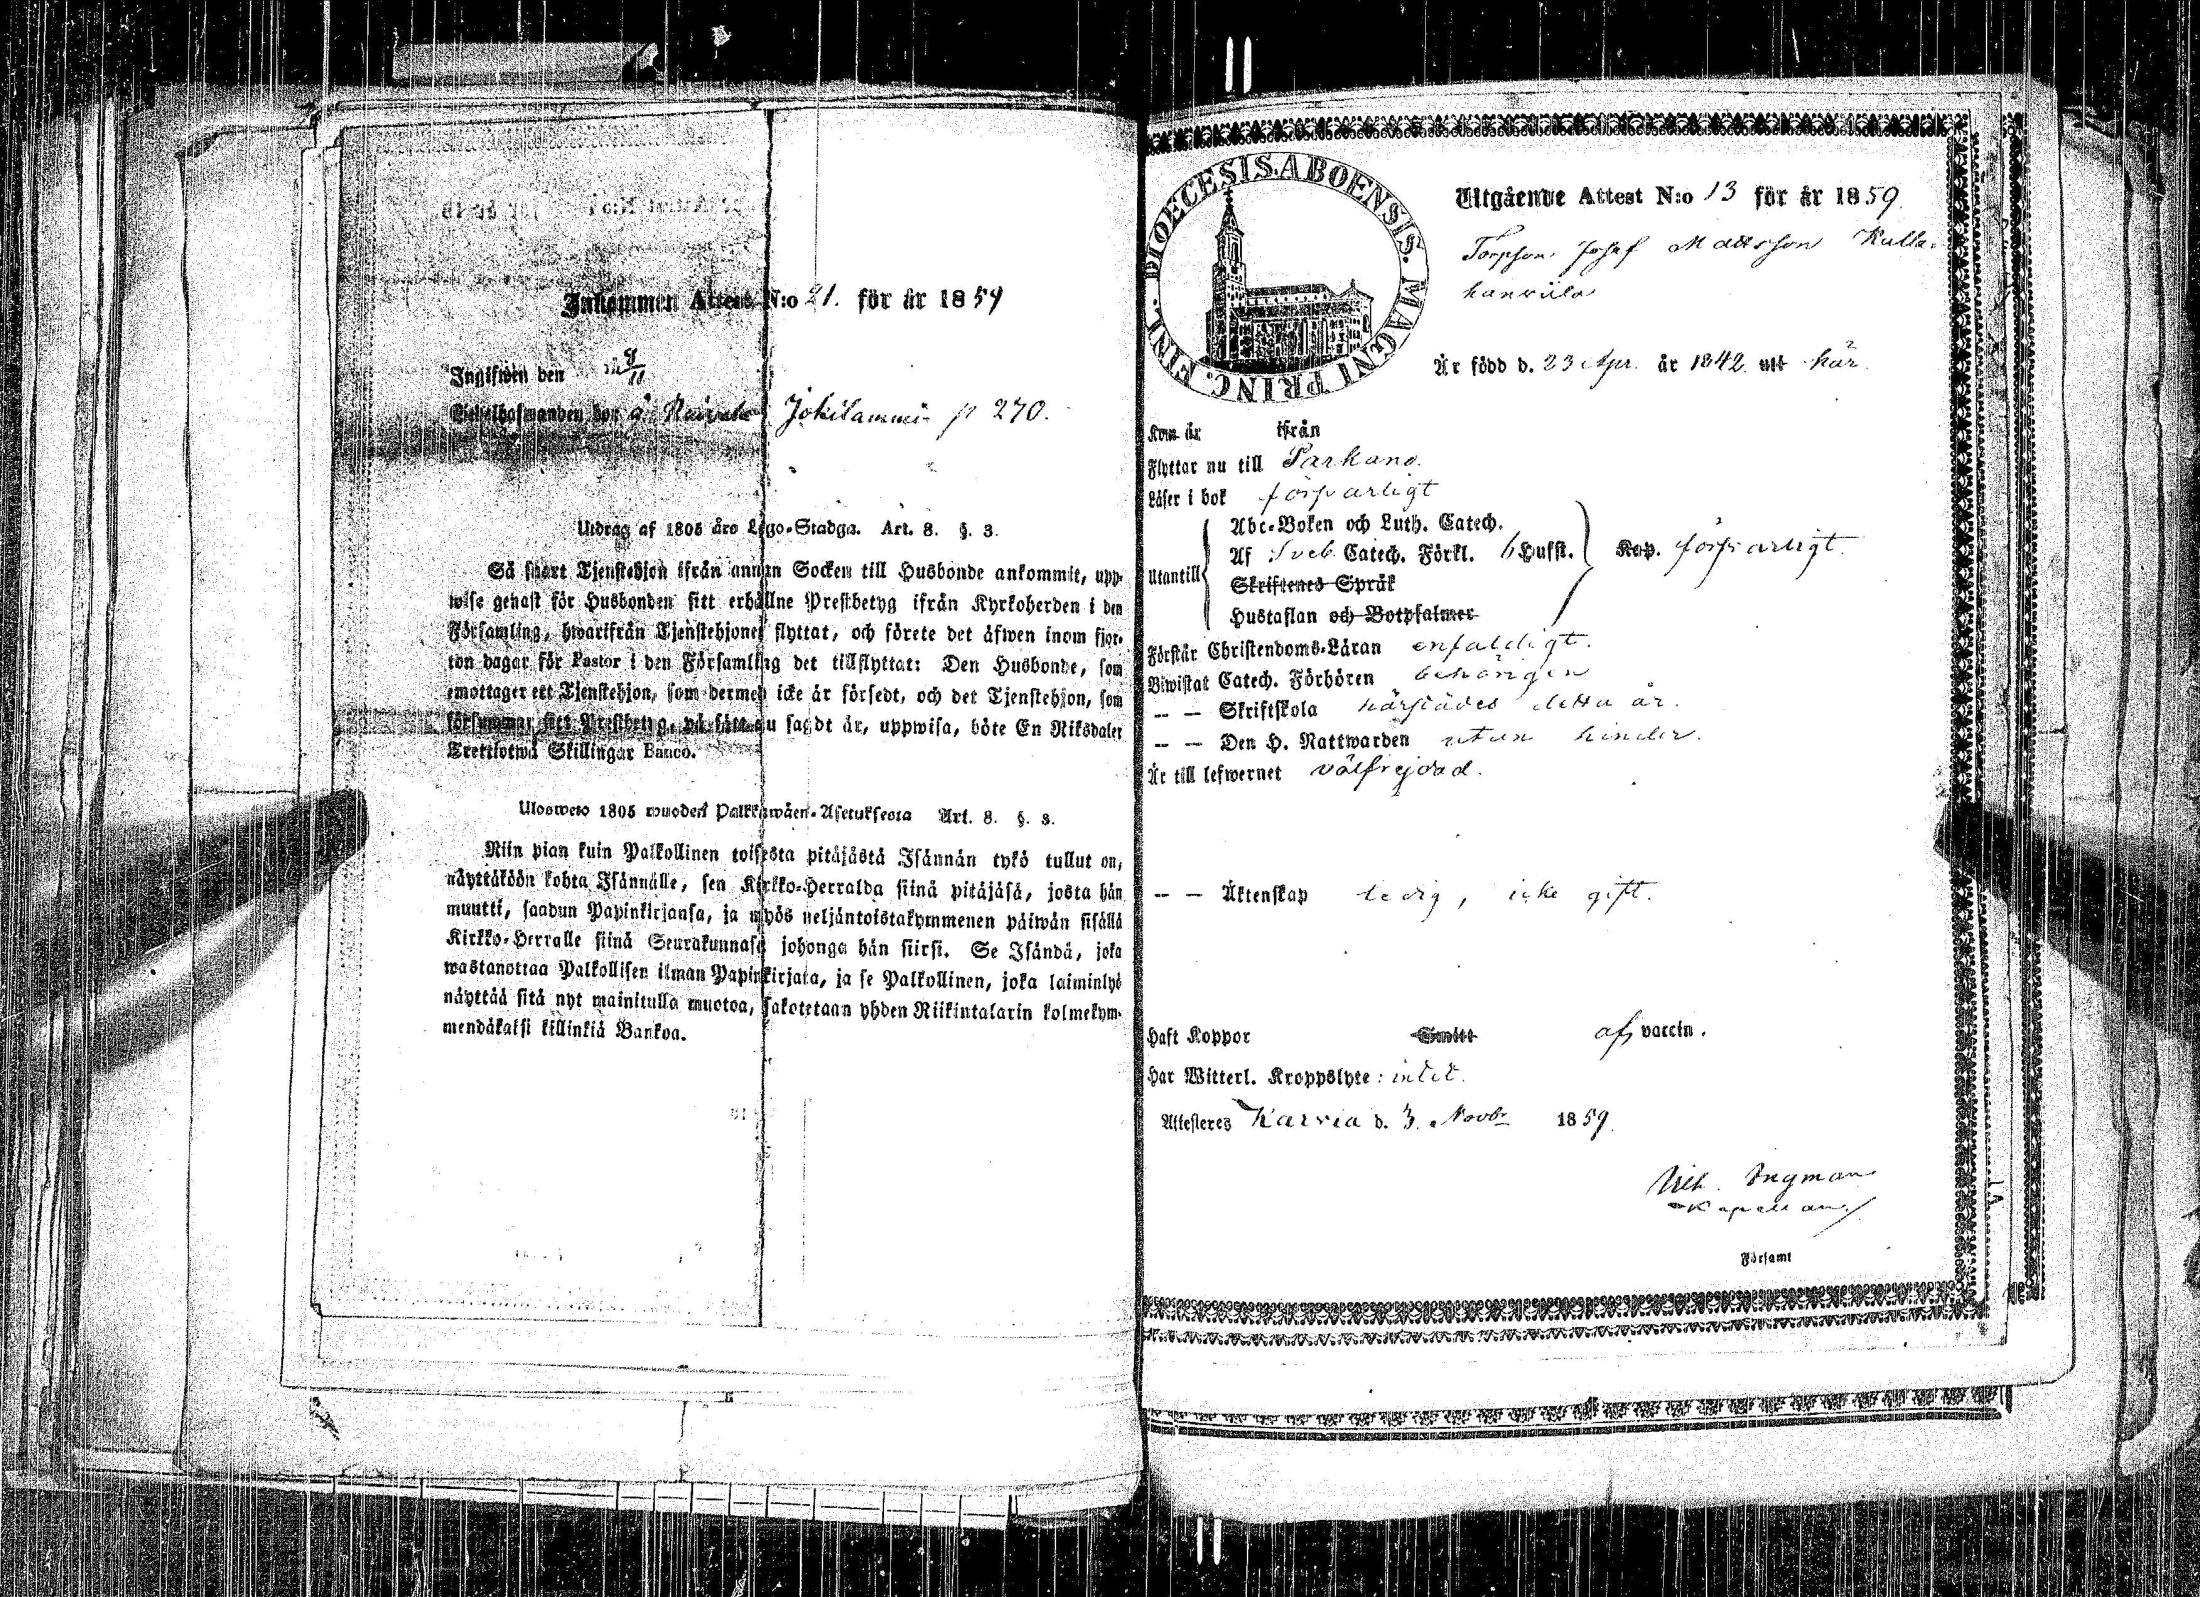 Inkommen Attest N:o 21. för år 1859
Ingifwen den 8/11
Betelhafwanden bor å Raivala Jokilammi p 270.
Utdrag af 1805 års Lego-Stadga. Art. 8. §. 3.
Så snart Tjenstehjon ifrån annan Socken till Husbonde ankommit, upp-
wise genast för Husbonden sitt erhållne Prestbetyg ifrån Kyrkoherden i den
Församling, hwarifrån Tjenstehjonet flyttat, och förete det äfwen inom fjor-
ton dagar för Pastor i den Församling det tillflyttat: Den Husbonde, som
emottager ett Tjenstehjon, som dermed icke är försedt, och det Tjenstehjon, som
försummar sitt Prestbetyg, på sätt nu sagdt är, uppwisa, böte En Riksdaler
Trettiotwå Skillingar Banco.
Ulosweto 1805 wuoden Palkkawäen-Asetuksesta Art. 8. §. 3.
Niin pian kuin Palkollinen toisesta pitäjästä Isännän tykö tullut on,
näyttäköön kohta Isännälle, sen Kirkko-Herralda siinä pitäjäsä, josta hän
muutti, saadun Papinkirjansa, ja myös neljäntoistakymmenen päiwän sisällä
Kirkko-Herralle siinä Seurakunnasa johonga hän siirsi. Se Isändä, joka
wastanottaa Palkollisen ilman Papinkirjata, ja se Palkollinen, joka laiminlyö
näyttää sitä nyt mainitulla muotoa, sakotetaan yhden Riikintalarin kolmekym-
mendäkaksi killinkiä Bankoa.
DIOECESIS. ABOENSIS. MAGNI PRINC. FINL.
Utgående Attest N:o 13 för år 1859.
Torpson Josef Mattsson Kulla-
kanviila
Är född d. 23 Apr. år 1842 uti här.
Kom år ifrån
Flyttar nu till Parkano.
Läser i bok försvarligt
Utantill Abc-Boken och Luth. Catech.
Af Sveb. Catech. Förkl. 6 Hufst. Kap. försvarligt.
Skriftenes Språk
Hustaflan och Botpsalmer
Förstår Christendoms-Läran enfaldigt.
Biwistat Catech. Förhören behörigen
-- -- Skriftskola härstädes detta år.
-- -- Den H. Nattwarden utan hinder.
Är till lefwernet välfrejdad.
-- -- Äktenskap ledig, icke gift.
Haft Koppor Smitt af vaccin.
Har Witterl. Kroppslyte: intet.
Attesteres Karvia d. 3. Novbr 1859.
Wilh. Ingman
Kapellan
Församl